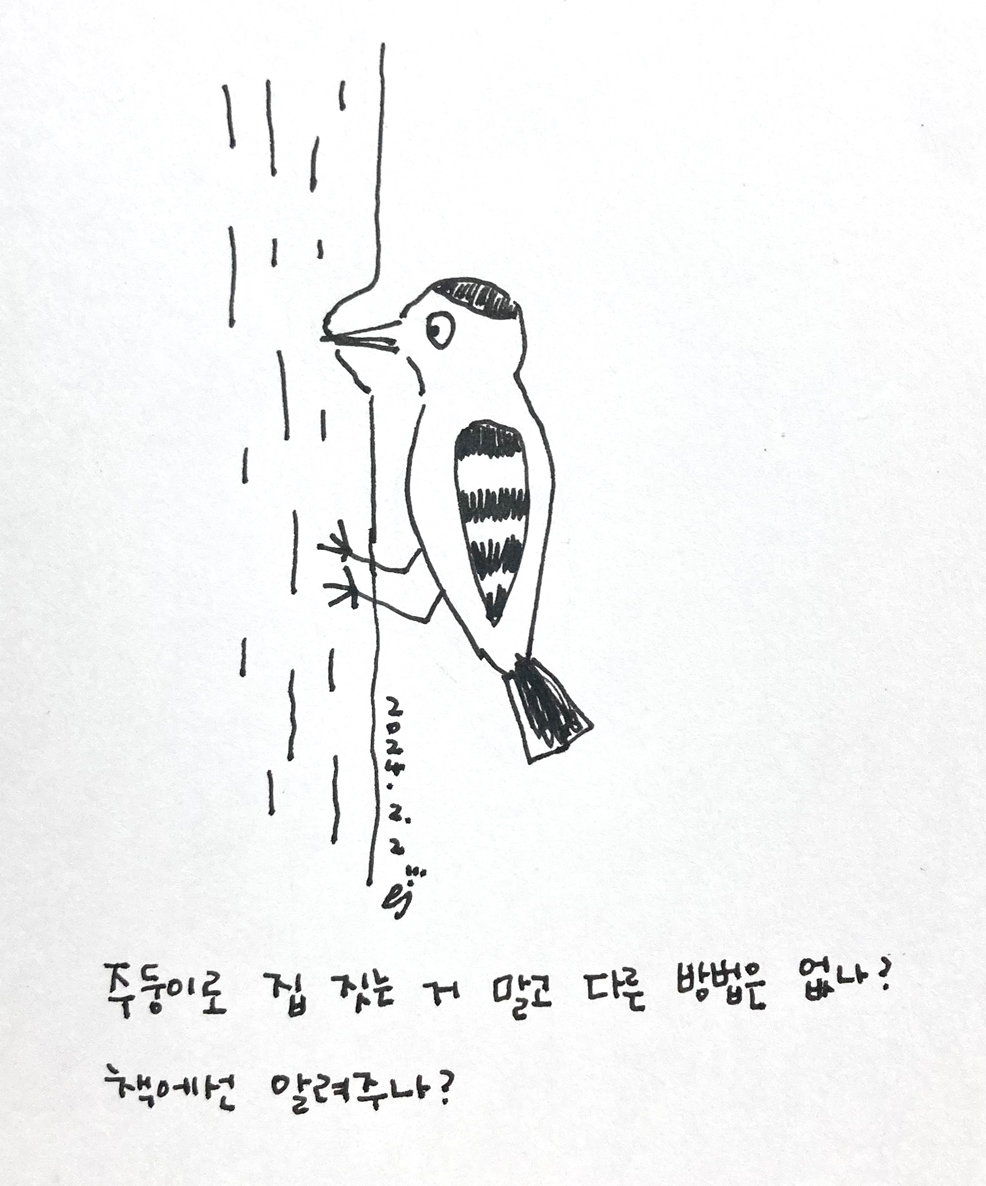 2024.2.2
ej
주둥이로 집 짓는 거 말고 다른 방법은 없나?
책에선 알려주나?